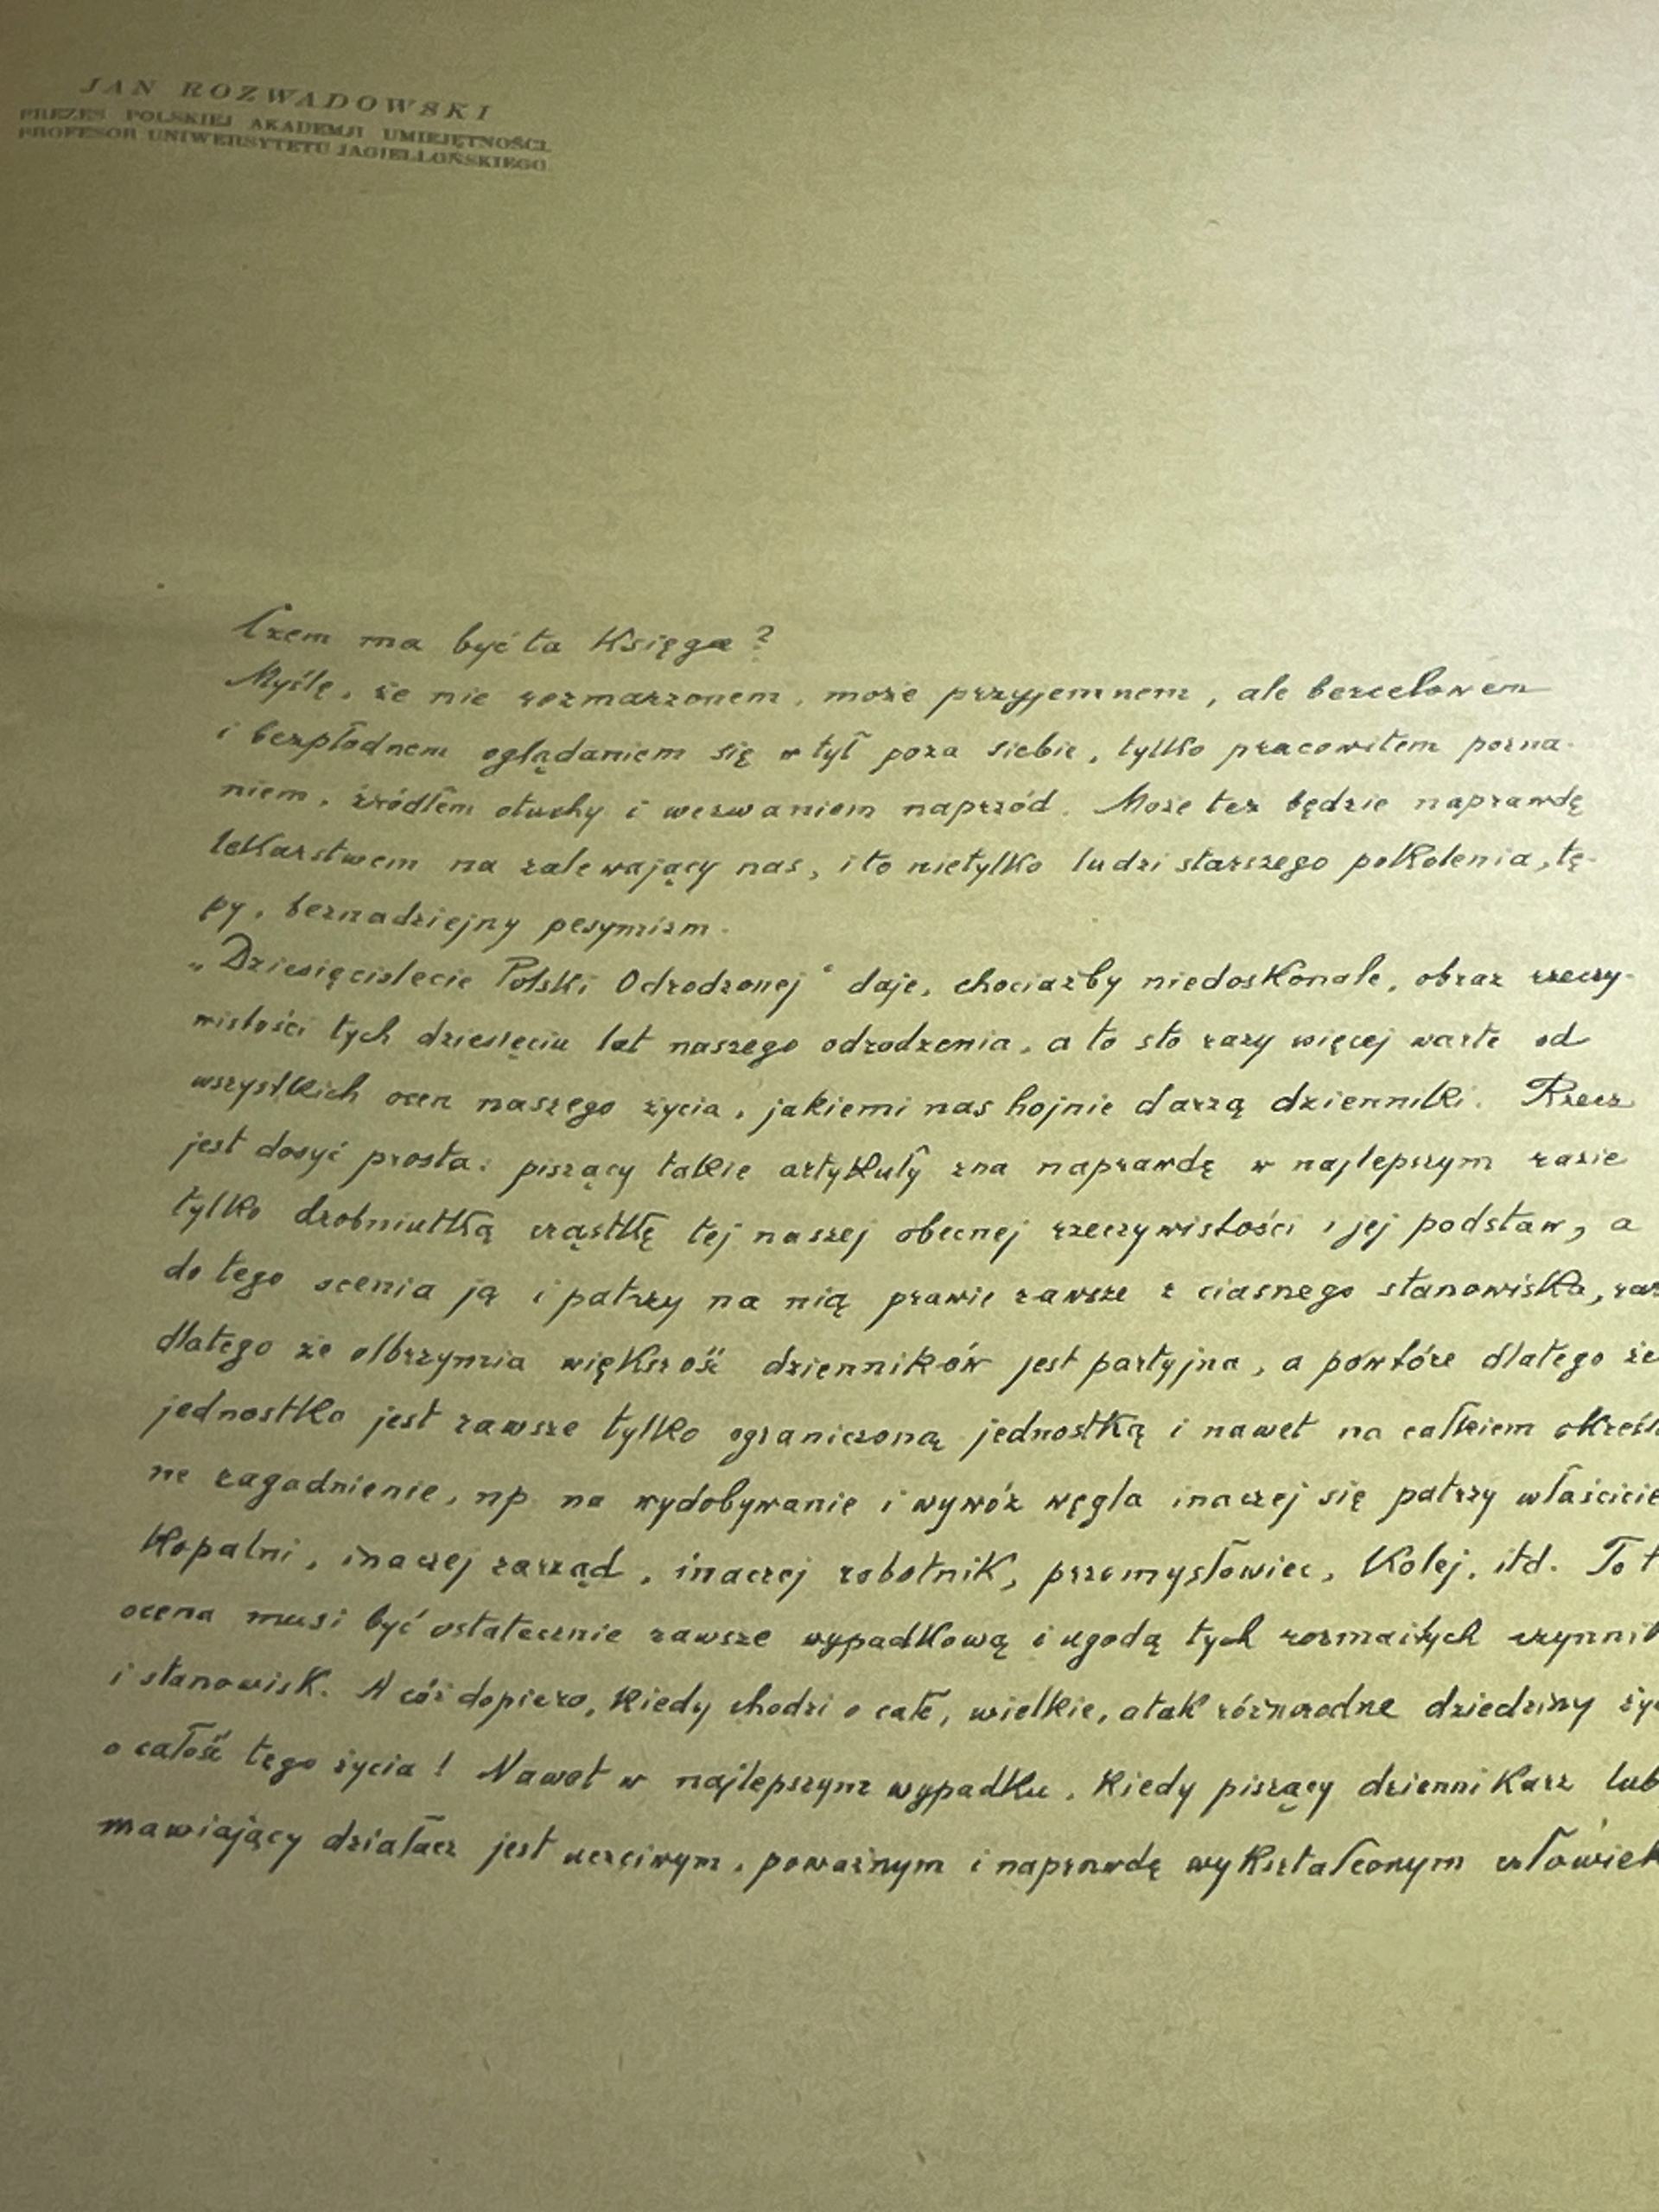 JAN ROZWADOWSKI
PREZES POLSKIEJ AKADEMJI UMIEJĘTNOŚCI,
PROFESOR UNIWERSYTETU JAGIELLOŃSKIEGO
Czem ma być ta Księga?
Myślę, że nie rozmarzonem, może przyjemnem, ale bezcelowem
i bezpłodnem oglądaniem się w tył poza siebie, tylko pracowitem pozna-
niem, źródłem otuchy i wezwaniem naprzód. Może też będzie naprawdę
lekarstwem na zalewający nas, i to nietylko ludzi starszego pokolenia, tę-
py, beznadziejny pesymizm.
„Dziesięciolecie Polski Odrodzonej" daje, chociażby niedoskonale, obraz rzeczy-
wistości tych dziesięciu lat naszego odrodzenia, a to sto razy więcej warte od
wszystkich ocen naszego życia, jakiemi nas hojnie darzą dzienniki. Rzecz
jest dosyć prosta: piszący takie artykuły zna naprawdę w najlepszym razie
tylko drobniutką cząstkę tej naszej obecnej rzeczywistości i jej podstaw, a
do tego ocenia ją i patrzy na nią prawie zawsze z ciasnego stanowiska, raz
dlatego że olbrzymia większość dzienników jest partyjna, a powtóre dlatego że
jednostka jest zawsze tylko ograniczoną jednostką i nawet na całkiem określo
ne zagadnienie, np. na wydobywanie i wywóz węgla inaczej się patrzy właścicie
kopalni, inaczej zarząd, inaczej robotnik, przemysłowiec, kolej, itd. To t
ocena musi być ostatecznie zawsze wypadkową i ugodą tych rozmaitych czynnik
i stanowisk. A cóż dopiero, kiedy chodzi o całe, wielkie, a tak różnorodne dziedziny życ
o całość tego życia! Nawet w najlepszym wypadku, kiedy piszący dziennikarz lub
mawiający działacz jest uczciwym, poważnym i naprawdę wykształconym człowiek